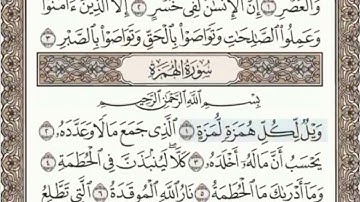 وَالْعَصْرِ ۝١ إِنَّ الْإِنسَٰنَ لَفِى خُسْرٍ ۝٢ إِلَّا الَّذِينَ ءَامَنُوا
وَعَمِلُوا الصَّٰلِحَٰتِ وَتَوَاصَوْا بِالْحَقِّ وَتَوَاصَوْا بِالصَّبْرِ ۝٣
سُورَةُ الْهُمَزَةِ
بِسْمِ اللَّهِ الرَّحْمَٰنِ الرَّحِيمِ
وَيْلٌ لِّكُلِّ هُمَزَةٍ لُّمَزَةٍ ۝١ الَّذِى جَمَعَ مَالًا وَعَدَّدَهُۥ ۝٢
يَحْسَبُ أَنَّ مَالَهُۥٓ أَخْلَدَهُۥ ۝٣ كَلَّا ۖ لَيُنۢبَذَنَّ فِى الْحُطَمَةِ ۝٤
وَمَآ أَدْرَىٰكَ مَا الْحُطَمَةُ ۝٥ نَارُ اللَّهِ الْمُوقَدَةُ ۝٦ الَّتِى تَطَّلِعُ